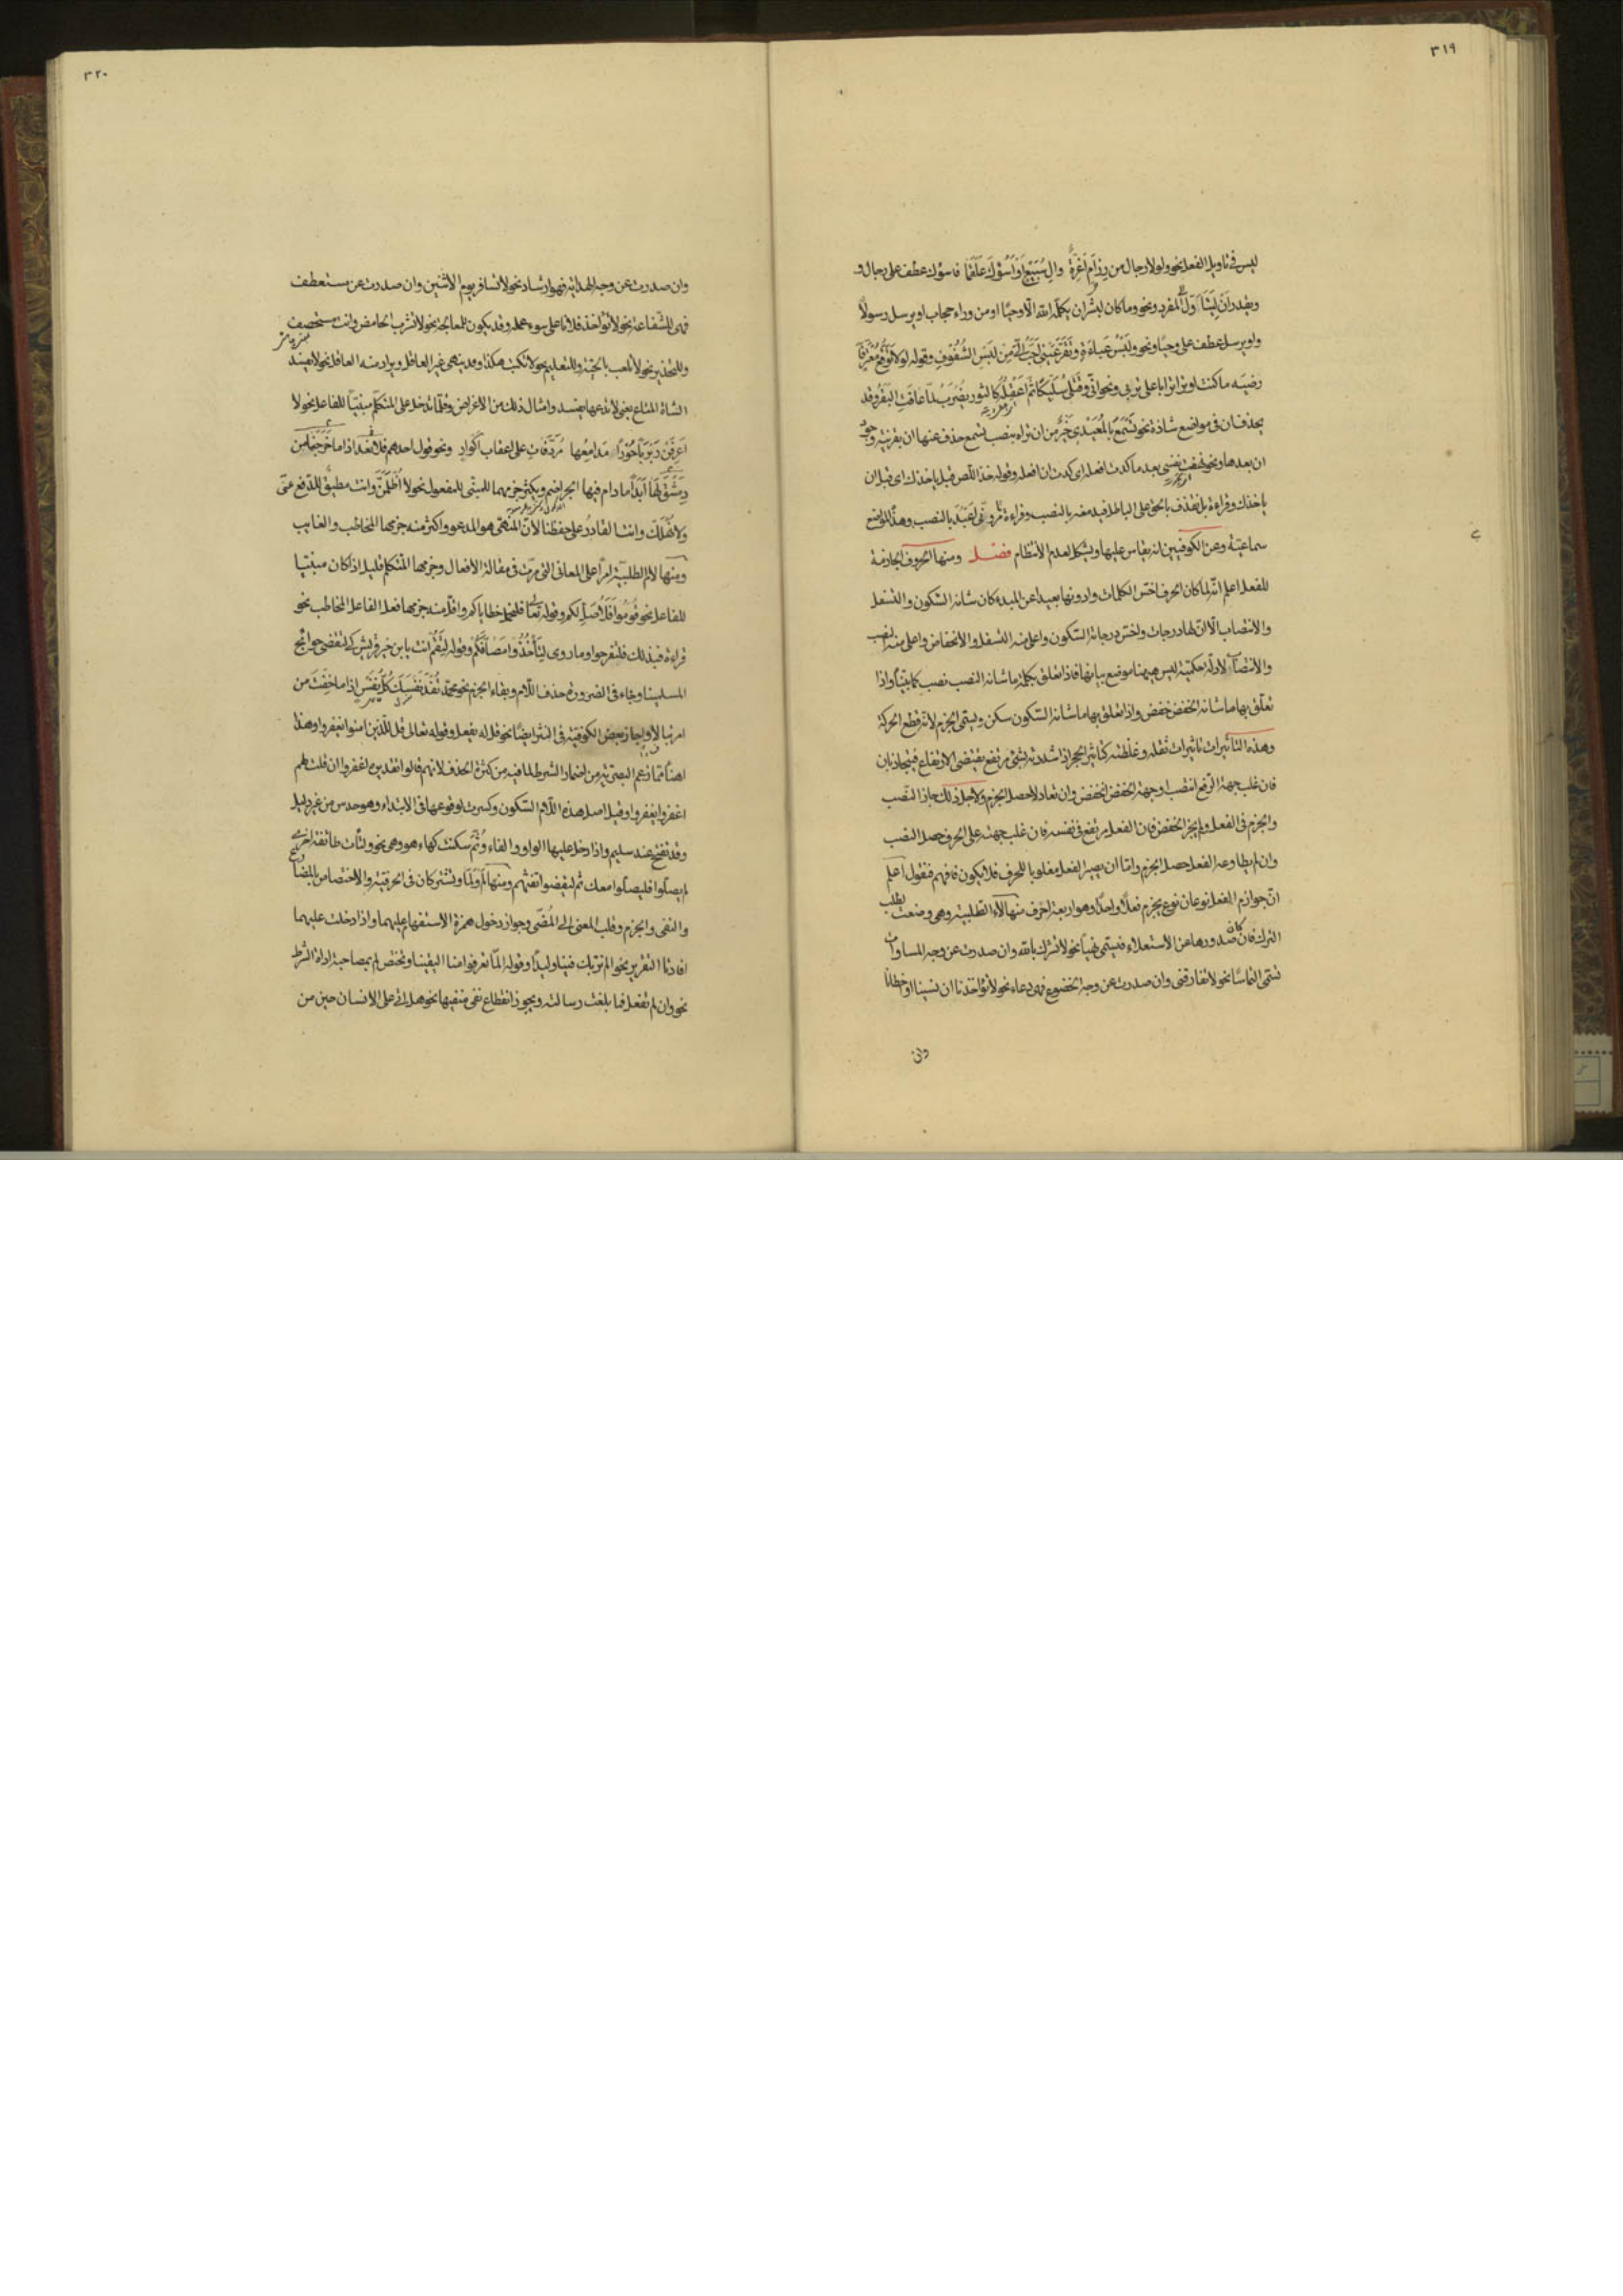 ٣١٩
ليس فى تاويل الفعل نحو ولولا رجال من رزام اعزة وال سبيع او اسوءك علقما فاسوءك عطف على رجال و
وما كان لبشر ان يكلمه الله الا وحيا او من وراء حجاب او يرسل رسولا
واو يرسل عطف على وحيا ونحو ولبس عباءة وتقر عينى احب الى من لبس الشفوف وقوله لولا توقع معتر فا
رضيه ما كنت اوثر اترابا على ترب ونحو انى وقتلى سليكا ثم اعقله كالثور يضرب لما عافت البقر وقد
يحذف ان فى مواضع شاذة نحو تسمع بالمعيدى خير من ان تراه بنصب تسمع حذف عنها ان بقرينة وجود
ان بعدها ونحو نهنهت نفسى بعد ما كدت افعله اى كدت ان افعله وقوله خذ اللص قبل ياخذك اى قبل ان
ياخذك وقراءة بل نقذف بالحق على الباطل فيدمغه بالنصب وقراءة تامرونى اعبد بالنصب وهذا المواضع
سماعية وعن الكوفيين انه يقاس عليها ويشكل لعدم الانتظام فصل ومنها الحروف الجازمة
للفعل اعلم انه لما كان الحرف اخس الكلمات وادونها بعيدا عن المبدء كان شانه السكون والتسفل
والانتصاب الا ان لها درجات واخس درجاته السكون واعلى منه التسفل والانخفاض واعلى منه النصب
والانتصاب لادلة حكمية ليس هيهنا موضع بيانها فاذا تعلق بكلمة ما شانه النصب نصب كما بينا واذا
تعلق بها ما شانه الخفض خفض واذا تعلق بها ما شانه السكون سكن ويسمى الجزم لانه قطع الحركة
وهذه التاثيرات تاثيرات ثقله وغلظته كتاثير الحجر اذا شددته بشىء مرتفع يقتضى الارتفاع فيتجاذبان
فان غلب جهة الرفع انتصب او جهة الخفض انخفض وان تعادلا حصل الجزم ولاجل ذلك جاز النصب
والجزم فى الفعل ولم يجز الخفض فان الفعل مرتفع فى نفسه فان غلب جهته على الحرف حصل النصب
وان لم يطاوعه الفعل حصل الجزم واما ان يصير الفعل مغلوبا للحرف فلا يكون فافهم فنقول اعلم
ان جوازم الفعل نوعان نوع يجزم فعلا واحدا وهو اربعة احرف منها لاء الطلبية وهى وضعت لطلب
الترك فان كان صدورها عن الاستعلاء فيسمى نهيا نحو لا تشرك بالله وان صدرت عن وجه المساوات
تسمى التماسا نحو لا تفارقنى وان صدرت عن وجه الخضوع فهى دعاء نحو لا تؤاخذنا ان نسينا او اخطانا
وان
٣٢٠
وان صدرت عن وجه الهداية فهو ارشاد نحو لا تسافر يوم الاثنين وان صدرت عن مستعطف
فهى للشفاعة نحو لا تؤاخذ فلانا على سوء عمله وقد يكون للمعالجة نحو لا تشرب الحامض وانت
وللتحذير نحو لا تلعب بالحية وللتعليم نحو لا تكتب هكذا وقد ينهى غير العاقل ويراد منه العاقل نحو لا يفسد
الشاة المتاع يعنى لا تدعها يفسد وامثال ذلك من الاغراض وقلما تدخل على المتكلم مبنيا للفاعل نحو لا
اعرفن ربربا حورا مدامعها مردفات على اعقاب اكوار ونحو قول احدهم فلا نعد اذا ما خرجنا من
دمشق لها ابدا ما دام فيها الجراضم ويكثر جزمهما للمبنى للمفعول نحو لا اظلمن وانت مطيق للدفع عنى
ولا نهلك وانت القادر على حفظنا لان المنهى هو المدعو واكثر منه جزمها المخاطب والغايب
ومنها لام الطلبية امرا على المعانى التى مرت فى مقالة الافعال وجزمها المتكلم قليل اذا كان مبنيا
للفاعل نحو قوموا فلاصل لكم وقوله تعالى ولنحمل خطاياكم واقل منه جزمها فعل الفاعل المخاطب نحو
قراءة فبذلك فلتفرحوا وما روى لتأخذوا مصافكم وقوله لتقم انت يا بن خير قريش كى لتقضى حوائج
المسلمينا وجاء فى الضرورة حذف اللام وبقاء الجزم نحو محمد تفد نفسك كل نفس اذا ما خفت من
امر تبالا واجاز بعض الكوفية فى النثر ايضا نحو قل له يفعل وقوله تعالى قل للذين امنوا يغفروا وهذا
اهنأ مما زعم البصرية من اضمار الشرط لما فيه من كثرة الحذف لانهم قالوا تقديره اغفروا ان قلت لهم
اغفروا يغفروا وقيل اصل هذه اللام السكون وكسرت لوقوعها فى الابتداء وهو حدس من غير دليل
وقد تفتح عند سليم واذا دخل عليها الواو والفاء وثم سكنت كهاء هو وهى نحو ولتأت طائفة اخرى
لم يصلوا فليصلوا معك ثم ليقضوا تفثهم ومنها لم ولما وتشتركان فى الحرفية والاختصاص بالمضارع
والنفى والجزم وقلب المعنى الى المضى وجواز دخول همزة الاستفهام عليهما واذا دخلت عليهما
افادتا التقرير نحو الم نربك فينا وليدا وقوله الما تعرفوا منا اليقينا وتختص لم بمصاحبة اداة الشرط
نحو وان لم تفعل فما بلغت رسالته ويجوز انقطاع نفى منفيها نحو هل اتى على الانسان حين من